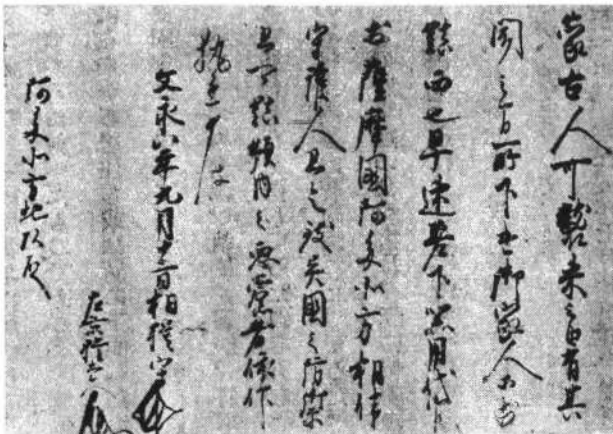 蒙古人可襲来之由有其
聞之間所下遣御家人等於
鎮西也早速差下器用代官
於薩摩國阿多北方相伴
守護人且令致異國之防禦
且可鎮領内之悪黨者依仰
執達如件
文永八年九月十三日相模守
左京権大夫
阿多北方地頭殿